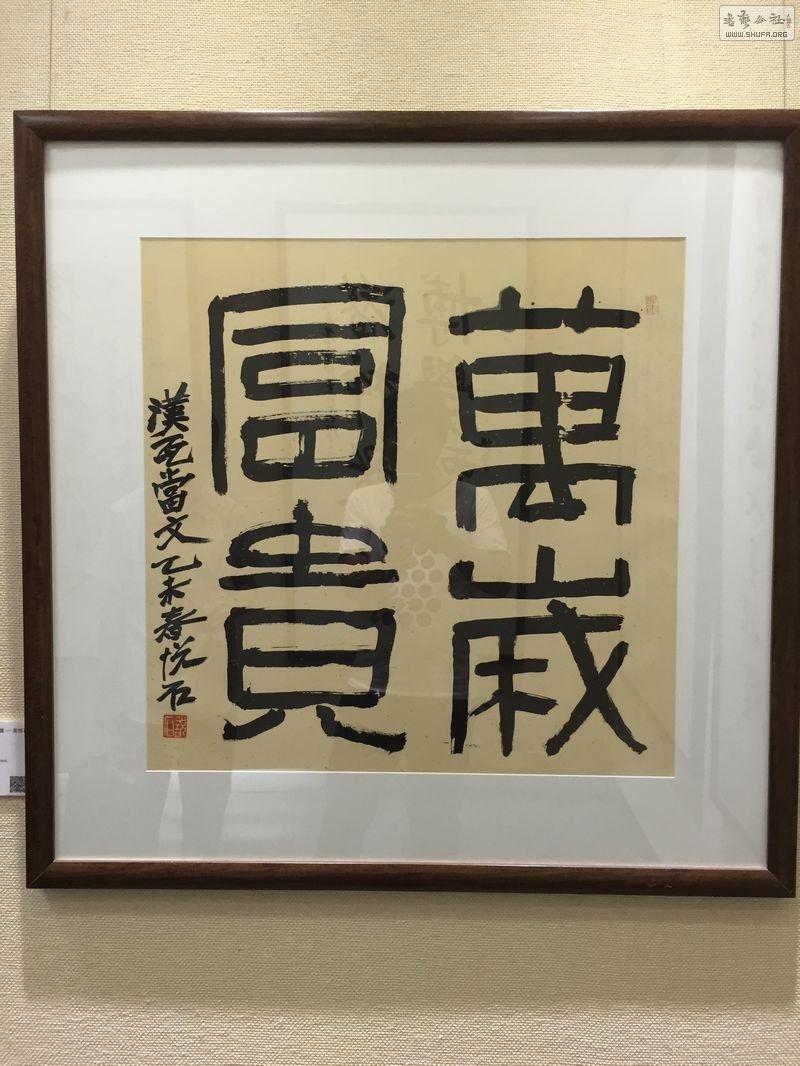 萬歲
富貴
漢瓦當文乙未春悅石
書藝公社
WWW.SHUFA.ORG